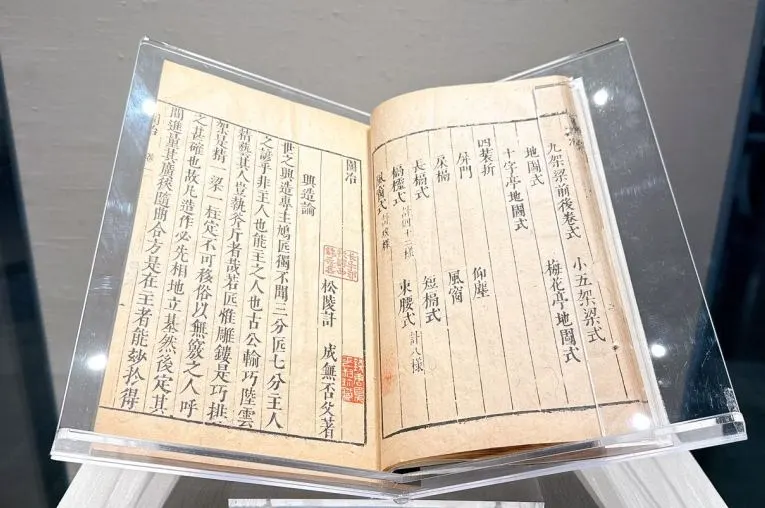 九架梁前後卷式 小五架梁式
地圖式 梅花亭地圖式
十字亭地圖式
四裝折
屏門 仰塵
床槅 風窗
長槅式 短槅式
槅櫺式 計四十三樣 束腰式 計八樣
風窗式 計玖樣
園冶
興造論
松陵計 成無否父著
世之興造專主鳩匠獨不聞三分匠七分主人
之諺乎非主人也能主之人也古公輸巧陸雲
精藝其人豈執斧斤者哉若匠惟雕鏤是巧排
架是精 梁一柱定不可移俗以無竅之人呼
之甚確也故凡造作必先相地立基然後定其
間進量其廣狹隨曲合方是在主者能妙於得
園冶